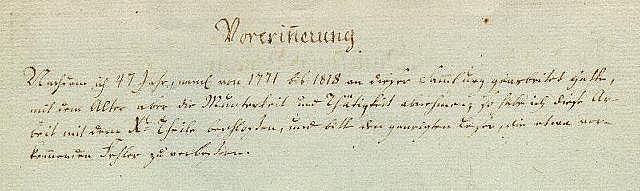 Vorerin̄erung
Nachdem ich 47 Jahr, naml. von 1771 bis 1818 an dieser Samlung gearbeitet hatte,
mit dem Alter aber die Munterkeit und Thätigkeit abnehmen, so habe ich diese Ar-
beit mit dem X. Theile beschlossen, und bitte den geneigten Leser, die etwa vor-
kom̄enden Fehler zu verbessern.